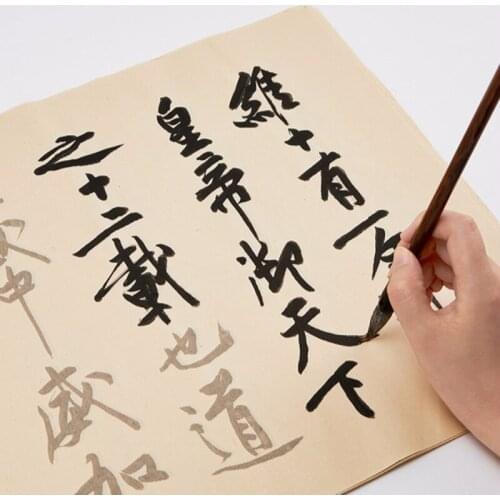 維十有一
皇帝御天下
之十二載也道
中威加